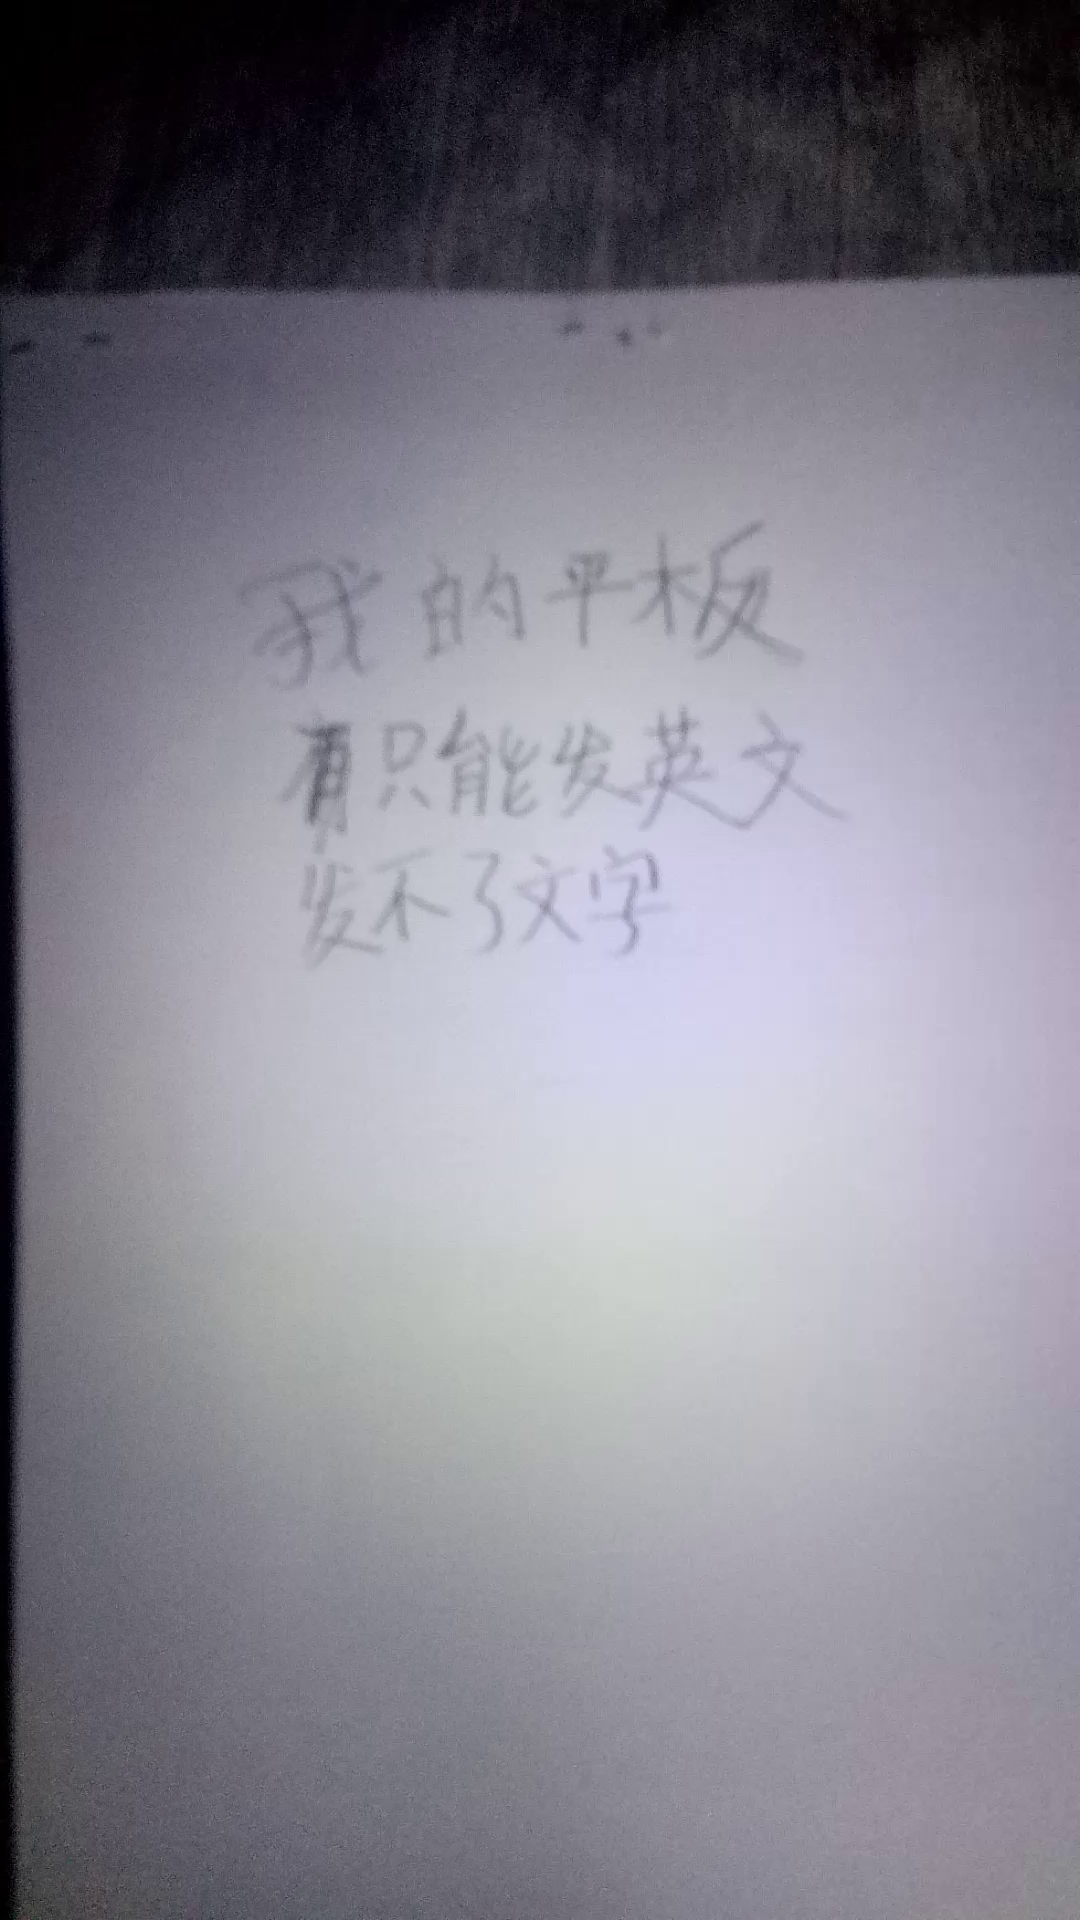 我的平板
有只能发英文
发不了文字